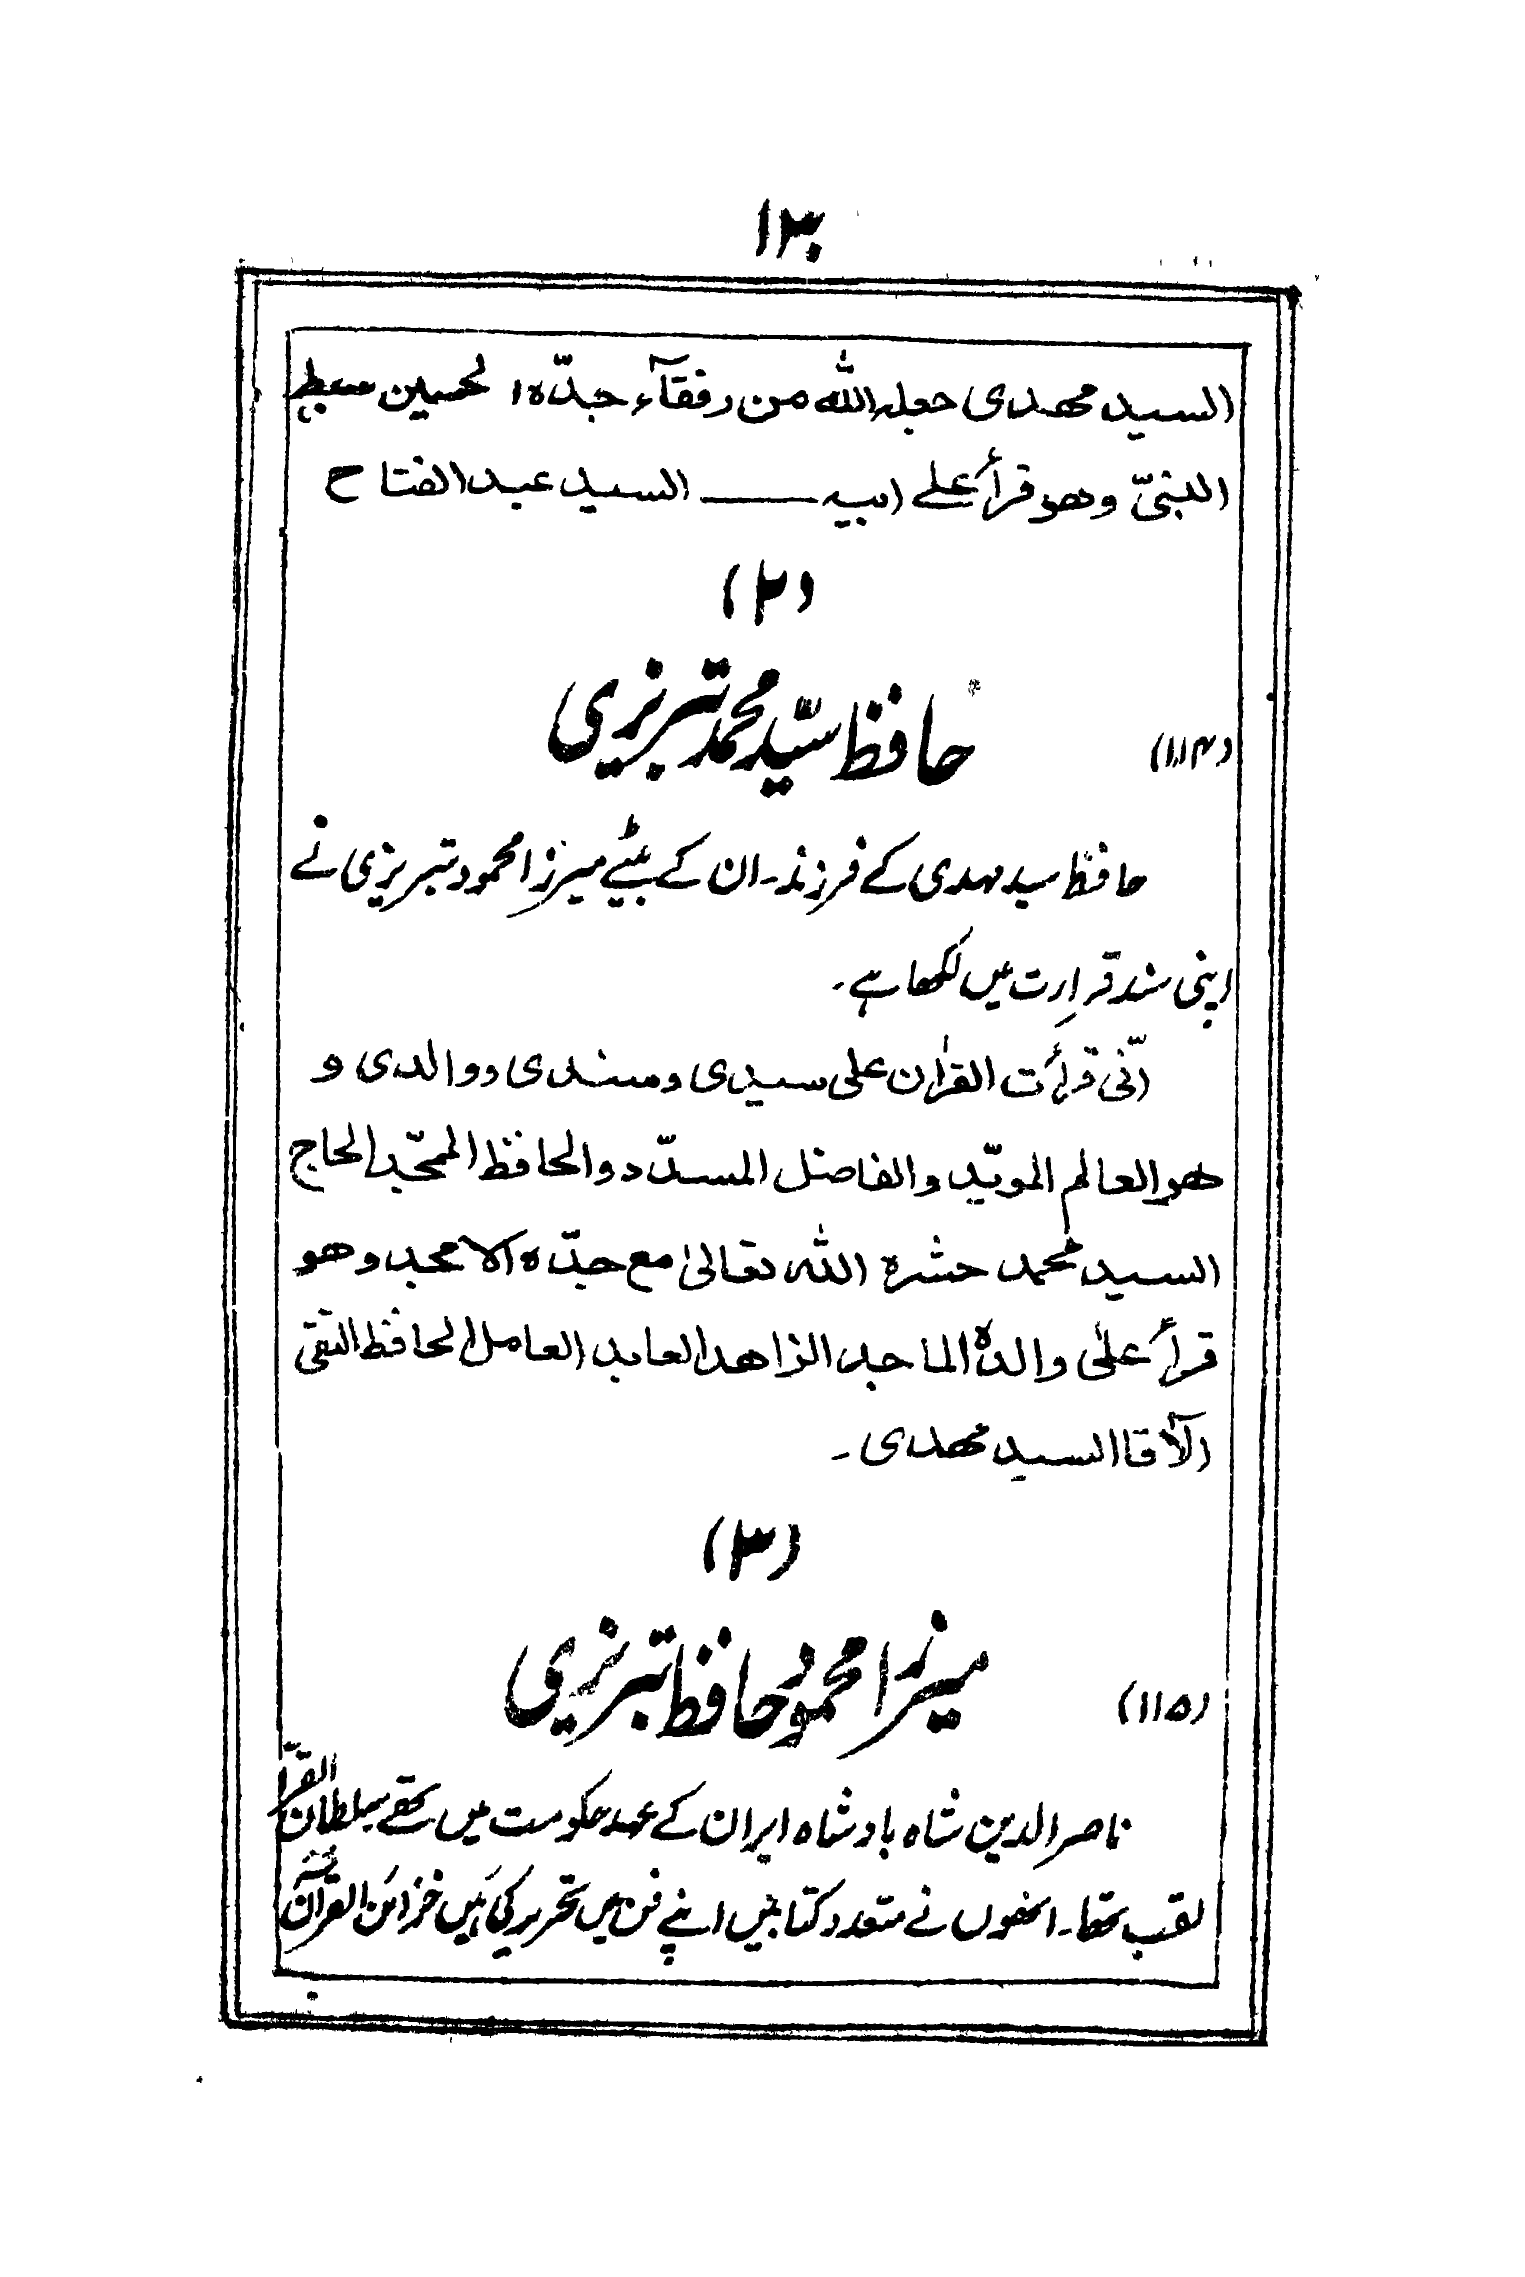 ۱۳۰
السید مهدی جعله الله من رفقآء جدّه الحسین سبط
النبیّ وهو قرأ علے ابیہ ــــــ السید عبد الفتاح
(۲)
(۱۱۴) حافظ سیّد محمد تبریزی
حافظ سید مہدی کے فرزند۔ ان کے بیٹے میرزا محمود تبریزی نے
اپنی سند قرارت میں لکھا ہے۔
انّی قرأت القراٰن علی سیدی و سندی و والدی و
هو العالم المویّد و الفاضل المسدّد و الحافظ الممجّد الحاج
السید محمد حشره الله تعالیٰ مع جدّه الامجد و هو
قرأ علیٰ والده الماجد الزاهد العابد العامل الحافظ التقی
الآقا السید مهدی ۔
(۳)
(۱۱۵) میرزا محمود حافظ تبریزی
ناصر الدین شاہ بادشاہ ایران کے عہد حکومت میں تھے سلطان القرّا
لقب تھا۔ انھوں نے متعدد کتابیں اپنے فن میں تحریر کی ہیں خزائن القرآن